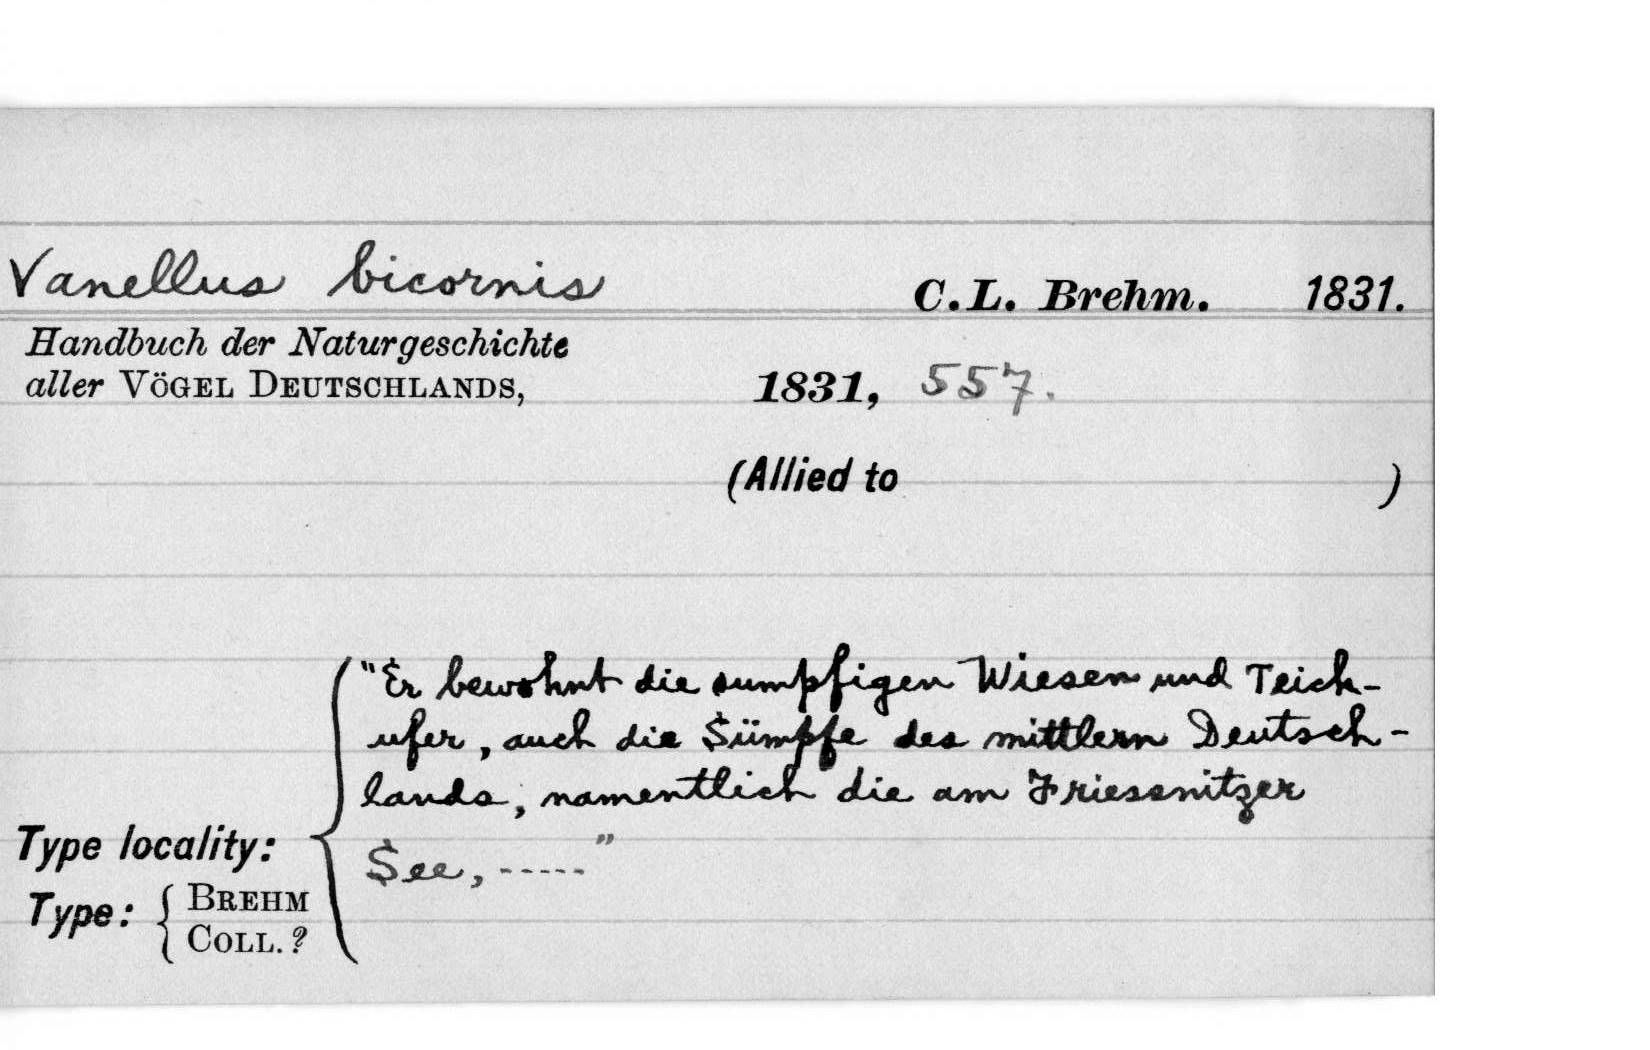 Vanellus bicornis C.L. Brehm. 1831.
Handbuch der Naturgeschichte
aller VÖGEL DEUTSCHLANDS, 1831, 557.
(Allied to )
"Er bewohnt die sumpfigen Wiesen und Teich-
ufer, auch die Sümpfe des mittlern Deutsch-
lands, namentlich die am Friessnitzer
Type locality: See, -----"
Type: { BREHM
COLL. ?